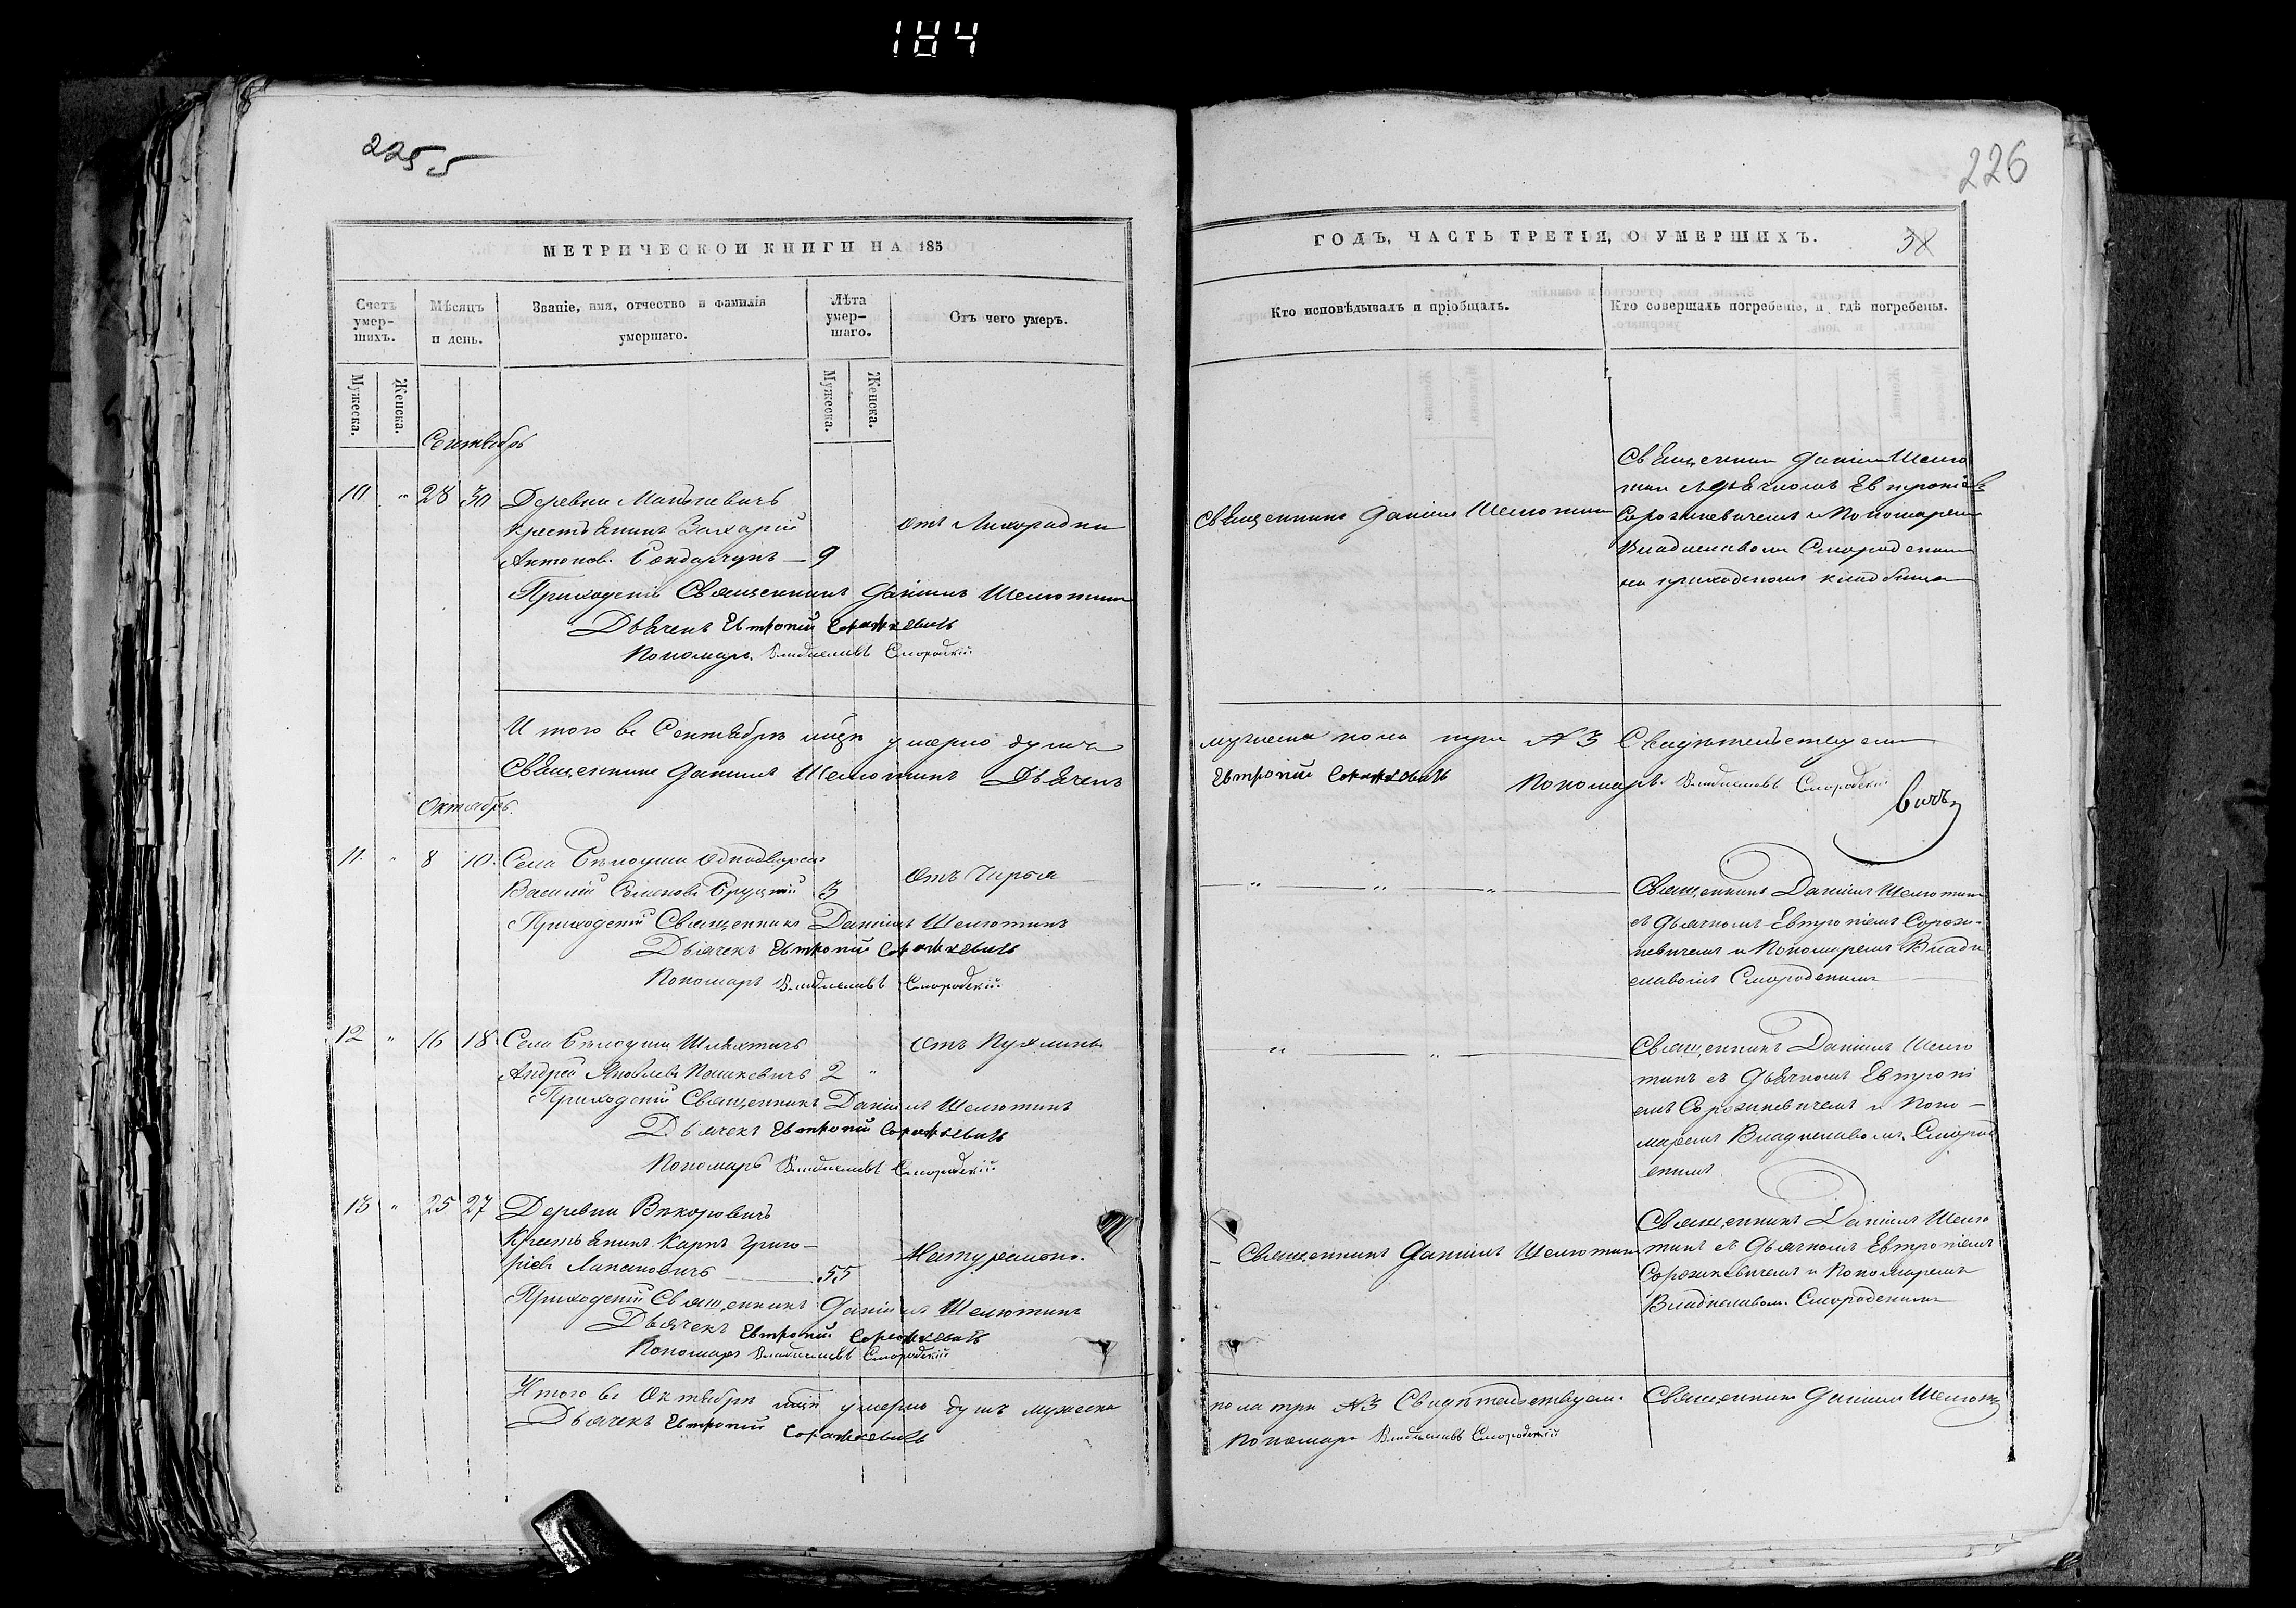 184
225
226
МЕТРИЧЕСКОЙ КНИГИ НА 185
ГОДЪ, ЧАСТЬ ТРЕТІЯ, О УМЕРШИХЪ.
Счетъ умер-шихъ.
Мѣсяцъ и день.
Званіе, имя, отчество и фамилія умершаго.
Лѣта умер-шаго.
Отъ чего умеръ.
Кто исповѣдывалъ и пріобщалъ.
Кто совершалъ погребеніе, и гдѣ погребены.
Мужеска.
Женска.
Мужеска.
Женска.
Сентябрь
10 " 28 30 Деревни
Крестьянинъ Захарій
Антоновъ Бондарчукъ — 9
отъ Лихорадки
Священникъ Даніилъ Шелютинъ
Священникъ Даніилъ Шелю
тинъ съ Дьячкомъ Евтропіемъ
Сорожкевичемъ и Пономаремъ
Владиславомъ Смородскимъ
на приходскомъ кладбище
Приходскій Священникъ Даніилъ Шелютинъ
Дьячекъ Евтропій Сорожкевичъ
Пономарь Владиславъ Смородскій
Итого въ Сентябрѣ мцѣ умерло душъ
мужеска пола три №3 Свидѣтельствуемъ
Священникъ Даніилъ Шелютинъ Дьячекъ
Евтропій Сорожкевичъ Пономарь Владиславъ Смородскій
Октябрь.
11. " 8 10. Села Бѣлоуши Однодворецъ
Василій Семеновъ 3
Отъ Чирья
" " "
Священникъ Даніилъ Шелютинъ
съ Дьячкомъ Евтропіемъ Сорож-
кевичемъ и Пономаремъ Влади
славомъ Смородскимъ
Приходскій Священникъ Даніилъ Шелютинъ
Дьячекъ Евтропій Сорожкевичъ
Пономарь Владиславъ Смородскій
12 " 16 18 Села Бѣлоуши Шляхтичъ
Андрей Яковлевъ Пашкевичъ 2 "
Отъ Пухлины
" "
Священникъ Даніилъ Шелю
тинъ съ Дьячкомъ Евтропі
емъ Сорожкевичемъ и Поно-
маремъ Владиславомъ Смород
скимъ
Приходскій Священникъ Даніилъ Шелютинъ
Дьячекъ Евтропій Сорожкевичъ
Пономарь Владиславъ Смородскій
13 " 25 27 Деревни Викоровичъ
Крестьянинъ Карпъ Григо-
ріевъ 55
Натурально.
Священникъ Даніилъ Шелютинъ
Священникъ Даніилъ Шелю
тинъ съ Дьячкомъ Евтропіемъ
Сорожкевичемъ и Пономаремъ
Владиславомъ Смородскимъ
Приходскій Священникъ Даніилъ Шелютинъ
Дьячекъ Евтропій Сорожкевичъ
Пономарь Владиславъ Смородскій
Итого въ Октябрѣ мцѣ умерло душъ мужеска
пола три №3 Свидѣтельствуемъ. Священникъ Даніилъ Шелютинъ
Дьячекъ Евтропій Сорожкевичъ
Пономарь Владиславъ Смородскій